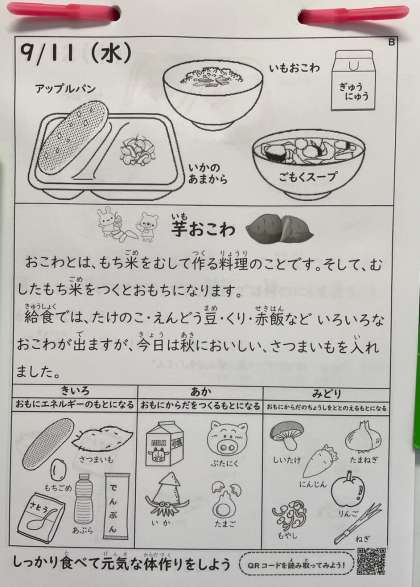 B
9/11（水）
アップルパン
いもおこわ
ぎゅうにゅう
いかの
あまから
ごもくスープ
芋おこわ
おこわとは、もち米をむして作る料理のことです。そして、む
したもち米をつくとおもちになります。
給食では、たけのこ・えんどう豆・くり・赤飯など いろいろな
おこわが出ますが、今日は秋においしい、さつまいもを入れ
ました。
きいろ
おもにエネルギーのもとになる
あか
おもにからだをつくるもとになる
みどり
おもにからだのちょうしをととのえるもとになる
さつまいも
もちごめ
さとう
あぶら
でんぷん
ぶたにく
いか
たまご
しいたけ
たまねぎ
にんじん
りんご
もやし
ねぎ
しっかり食べて元気な体作りをしよう
QRコードを読み取ってみよう!